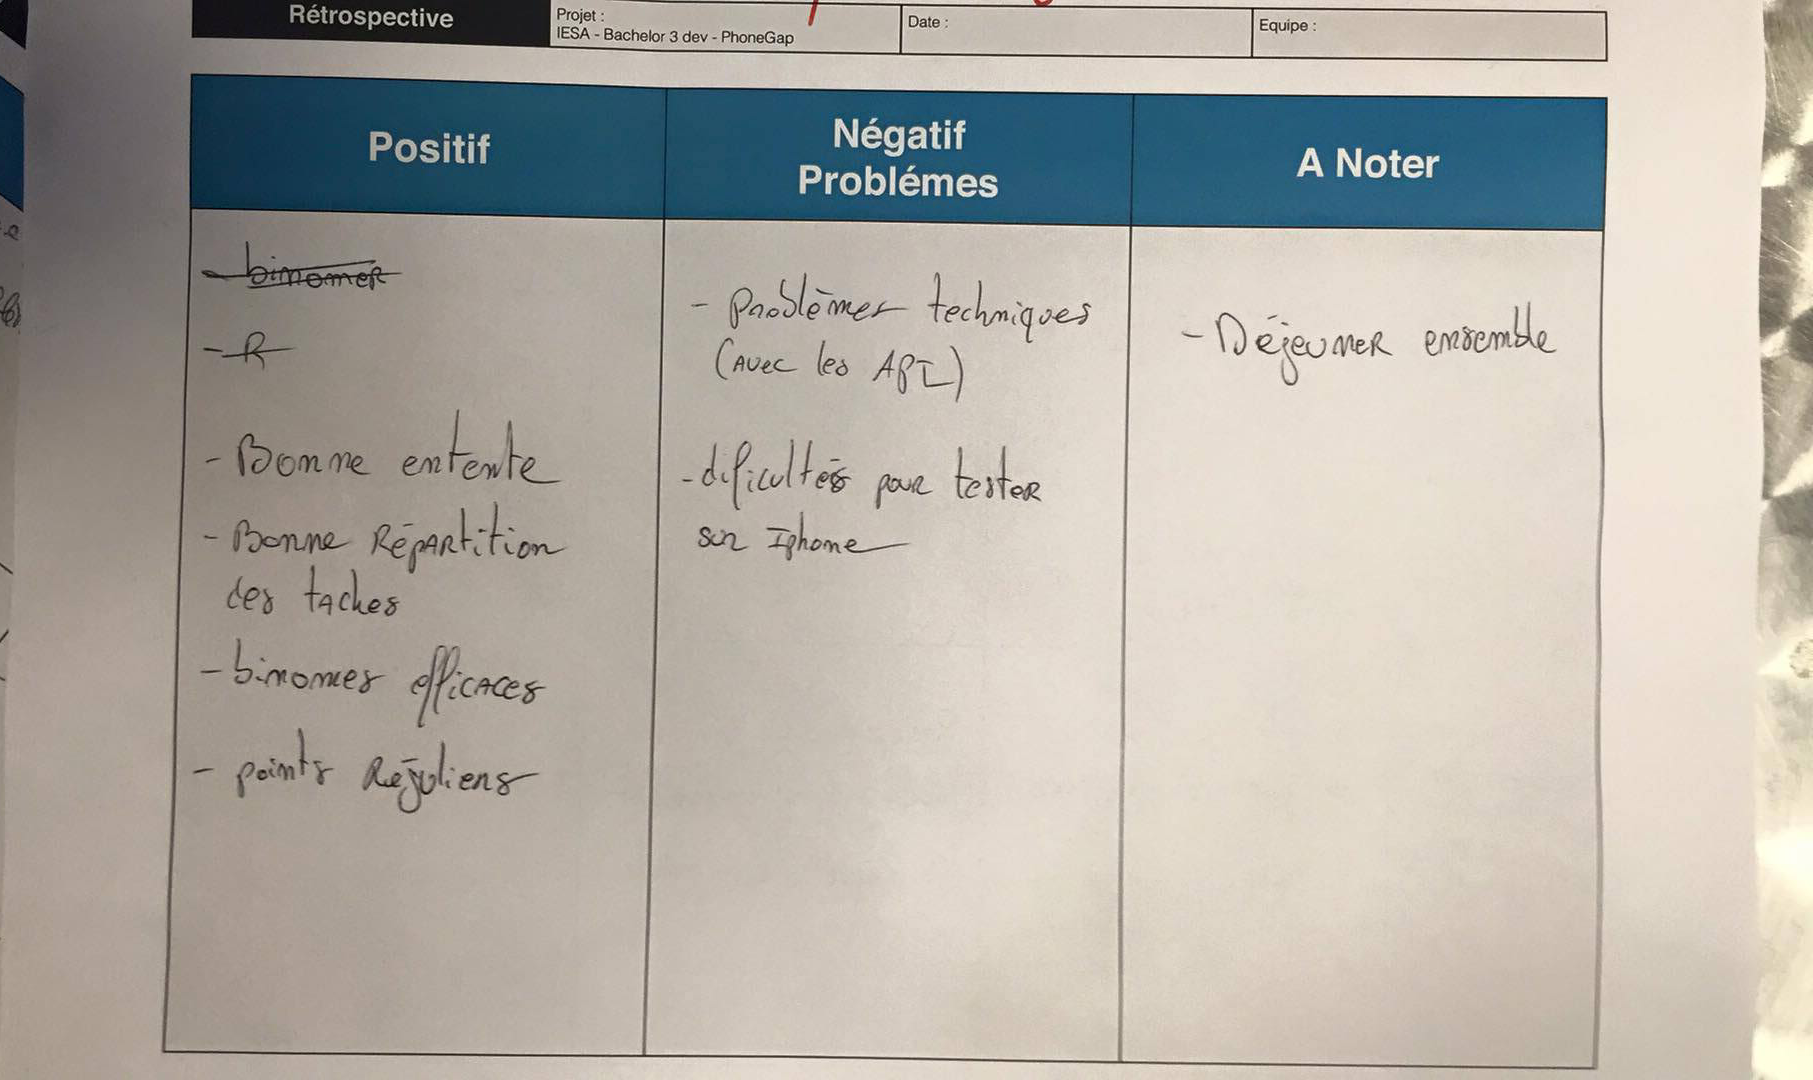 Rétrospective
Projet :
IESA - Bachelor 3 dev - PhoneGap
Date :
Equipe :
Positif
Négatif
Problémes
A Noter
- binomer
- R
- Bonne entente
- Bonne Répartition
des taches
- binomes efficaces
- points Réguliers
- Problèmes techniques
(Avec les API)
- dificultés pour tester
sur Iphone
- Déjeuner ensemble